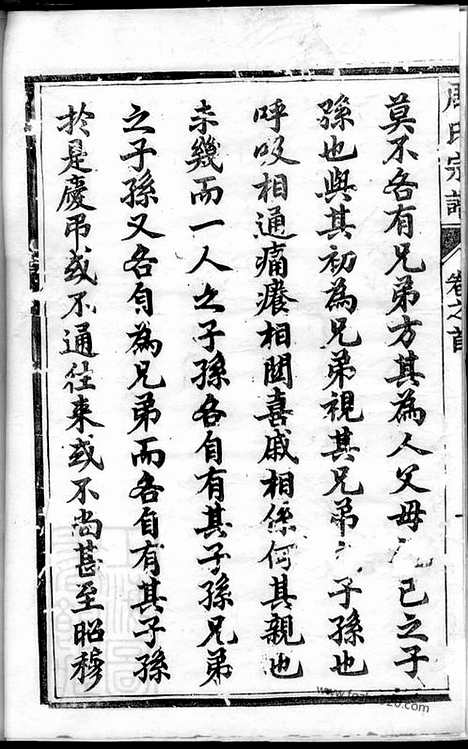 周氏宗譜 卷之首
莫不各有兄弟方其為人父母己之子
孫也與其初為兄弟視其兄弟子孫也
呼吸相通痛癢相関喜戚相係何其親也
未幾而一人之子孫各自有其子孫兄弟
之子孫又各自為兄弟而各自有其子孫
於是慶吊或不通往来或不尚甚至昭穆